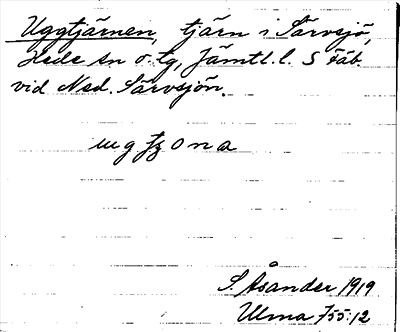 Uggtjärnen, tjärn i Särvsjö,
Hede sn o. tg, Jämtl. l. S Fäb.
vid Ned. Särvsjön.
S. Åsander 1919
Ulma 755:12